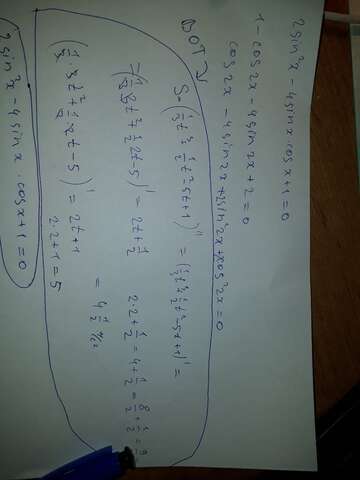 2sin²x - 4sinx·cosx+1=0
1 - cos2x - 4sin2x + 2 = 0
cos2x - 4sin2x + 2sin²2x + 2cos²2x = 0
ВОТ
S=(⅓t³+½t²-5t+1)'' = (⅓t³+½t²-5t+1)' =
=(⅓3t²+½2t-5)' = 2t+½ 2·2+½=4+½=8/2+1/2=9/2
= 4½ м/с²
(⅓·3t²+½2t-5)' = 2t+1
2·2+1=5
2sin²x-4sinx·cosx+1=0